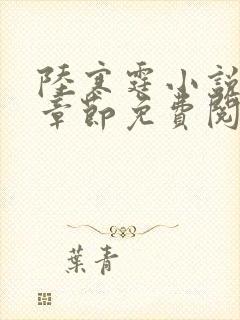 陸寒霆小說
章節免費閱
葉青